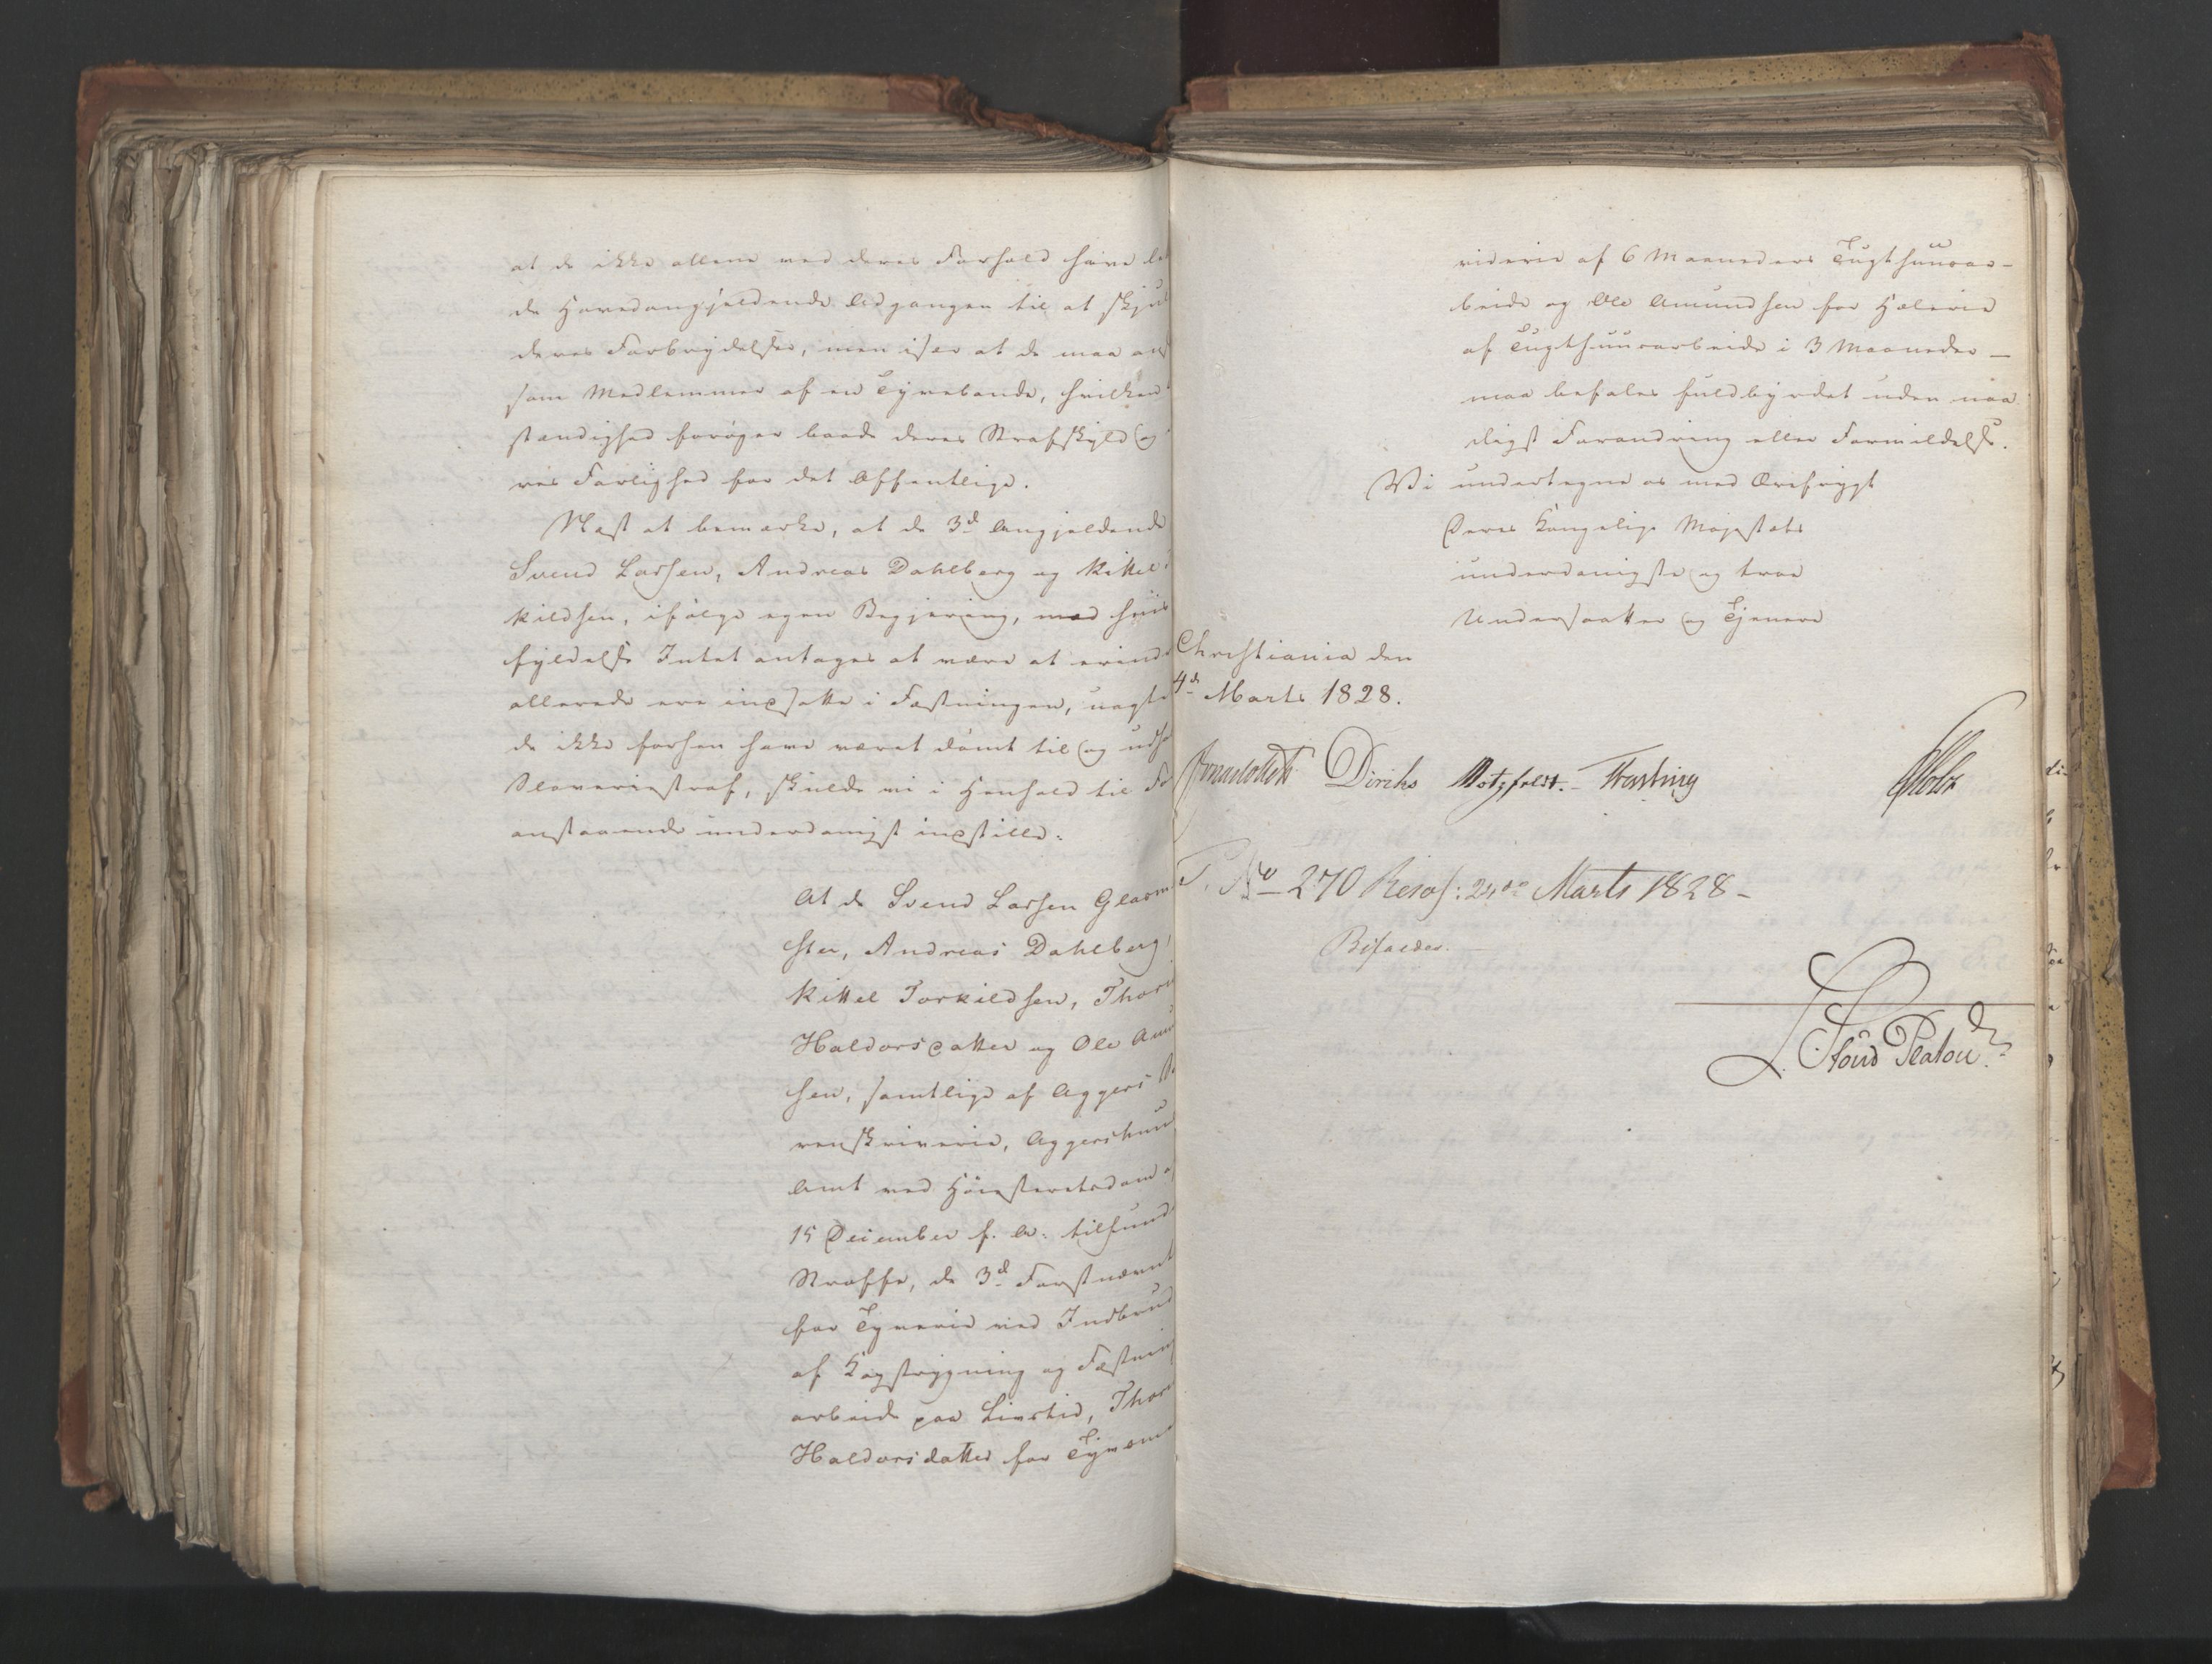 at de ikke allene ved deres Forhold have let
de Hovedangjeldende Adgangen til at skjul
deres Forbrydelser, men især at de maa ans
som Medlemmer af en Tyvebande, hvilken
stændighed forøger baade deres Strafskyld og
res Farlighed for det Offentlige.
Næst at bemærke, at de 3de Angjeldende
Svend Larsen, Andreas Dahlberg og Kittel
kildsen, ifølge egen Begjering, mod hvis
fyldelse Intet antages at være at erind
allerede ere indsatte i Fæstningen, uagte
de ikke forhen have været dømt til og udh
Slaveriestraf, skulde vi i Henhold til Fo
anstaaende underdanigst indstille:
At de Svend Larsen Glasm
ster, Andreas Dahlberg,
Kittel Torkildsen, Thor
Haldorsdatter og Ole Amu
sen, samtlige af Aggers So
renskriverie, Aggershuus
Amt ved Høiesteretsdom af
15 December f. A. tilfund
Straffe, de 3de Førstnævnt
for Tyverie ved Indbrud
af Kagstrygning og Fæstning
arbeide paa Livstid, Thor
Haldorsdatter for Tyve
riderie af 6 Maaneders Tugthuusar-
beide og Ole Amundsen for Hælerie
af Tugthuusarbeide i 3 Maaneder —
maa befales fuldbyrdet uden naa
digst Forandring eller Formildelse.
Vi undertegne os med Ærefrygt
Deres Kongelige Majestæts
underdanigste og troe
Undersaatter og Tjenere
Christiania den
4de Marts 1828.
Diriks Motzfeldt. Treschow Holst
No 270 Resol: 24de Marts 1828 –
Bifaldes.
Stoud Platou